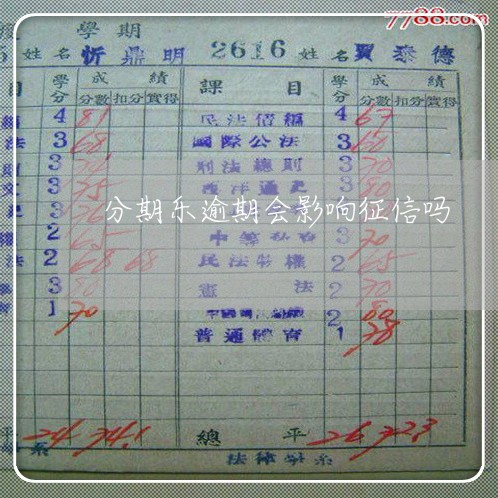 7788.com
學期
姓名 忻鼎明 2616 姓名 賈泰德
目 學分 成績 課目 學分 成績
分數 扣分 實得 分數 扣分 實得
4 81 民法債編 4 67
法 3 68 國際公法 3 60
3 刑法總則 3 70
3 75 西洋通史 3 80
3
分期乐逾期会影响征信吗
2 65 3 70
法 2 68 68 民法物權 2 65
3 80 憲法 2 70
1 70 2 80
普通體育 1 78
平 24 74.1 總平 26 72.3
系 法律學系